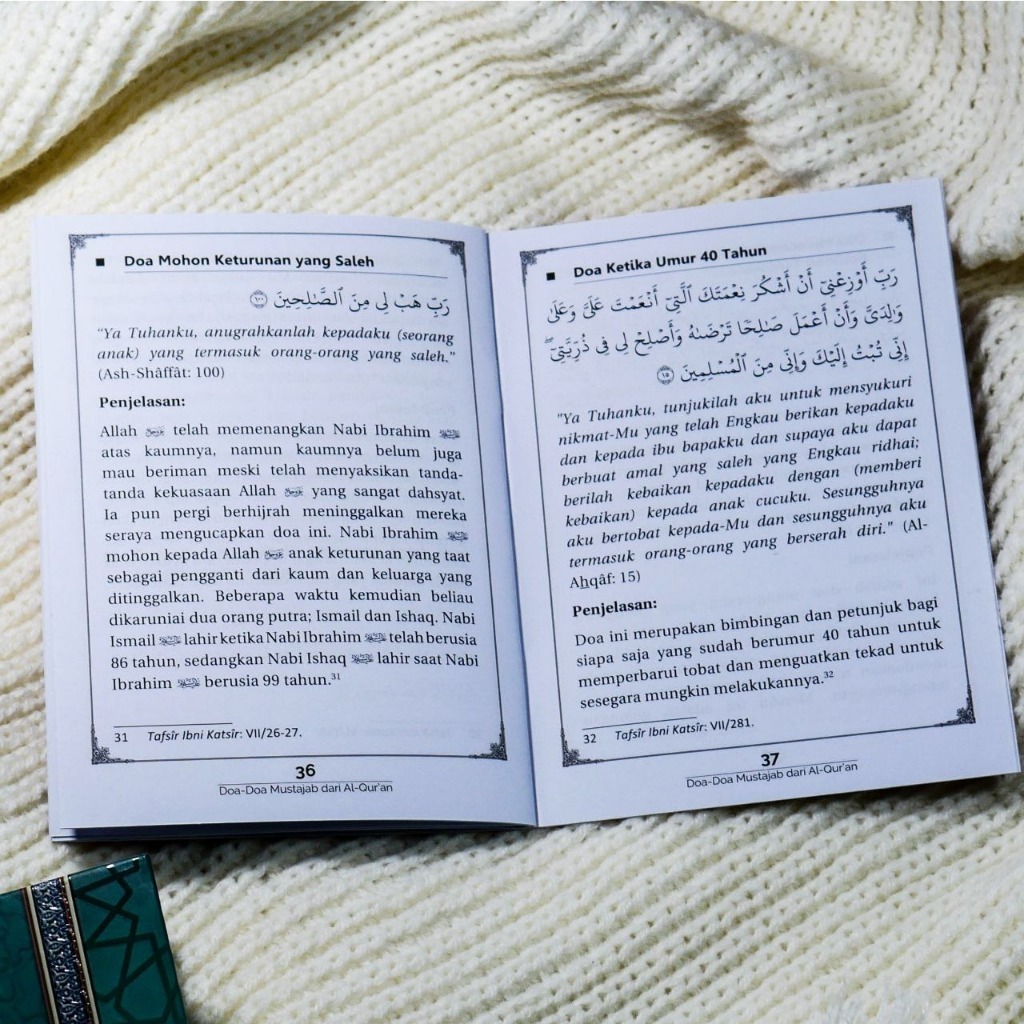 ▪ Doa Mohon Keturunan yang Saleh
رَبِّ هَبْ لِى مِنَ ٱلصَّـٰلِحِينَ ١٠٠
"Ya Tuhanku, anugrahkanlah kepadaku (seorang
anak) yang termasuk orang-orang yang saleh."
(Ash-Shâffât: 100)
Penjelasan:
Allah telah memenangkan Nabi Ibrahim
atas kaumnya, namun kaumnya belum juga
mau beriman meski telah menyaksikan tanda-
tanda kekuasaan Allah yang sangat dahsyat.
Ia pun pergi berhijrah meninggalkan mereka
seraya mengucapkan doa ini. Nabi Ibrahim
mohon kepada Allah anak keturunan yang taat
sebagai pengganti dari kaum dan keluarga yang
ditinggalkan. Beberapa waktu kemudian beliau
dikaruniai dua orang putra; Ismail dan Ishaq. Nabi
Ismail lahir ketika Nabi Ibrahim telah berusia
86 tahun, sedangkan Nabi Ishaq lahir saat Nabi
Ibrahim berusia 99 tahun.³¹
31 Tafsîr Ibni Katsîr: VII/26-27.
36
Doa-Doa Mustajab dari Al-Qur'an
▪ Doa Ketika Umur 40 Tahun
رَبِّ أَوْزِعْنِىٓ أَنْ أَشْكُرَ نِعْمَتَكَ ٱلَّتِىٓ أَنْعَمْتَ عَلَىَّ وَعَلَىٰ
وَٰلِدَىَّ وَأَنْ أَعْمَلَ صَـٰلِحًا تَرْضَىٰهُ وَأَصْلِحْ لِى فِى ذُرِّيَّتِىٓ ۖ
إِنِّى تُبْتُ إِلَيْكَ وَإِنِّى مِنَ ٱلْمُسْلِمِينَ ١٥
"Ya Tuhanku, tunjukilah aku untuk mensyukuri
nikmat-Mu yang telah Engkau berikan kepadaku
dan kepada ibu bapakku dan supaya aku dapat
berbuat amal yang saleh yang Engkau ridhai;
berilah kebaikan kepadaku dengan (memberi
kebaikan) kepada anak cucuku. Sesungguhnya
aku bertobat kepada-Mu dan sesungguhnya aku
termasuk orang-orang yang berserah diri." (Al-
Ahqâf: 15)
Penjelasan:
Doa ini merupakan bimbingan dan petunjuk bagi
siapa saja yang sudah berumur 40 tahun untuk
memperbarui tobat dan menguatkan tekad untuk
sesegera mungkin melakukannya.³²
32 Tafsîr Ibni Katsîr: VII/281.
37
Doa-Doa Mustajab dari Al-Qur'an